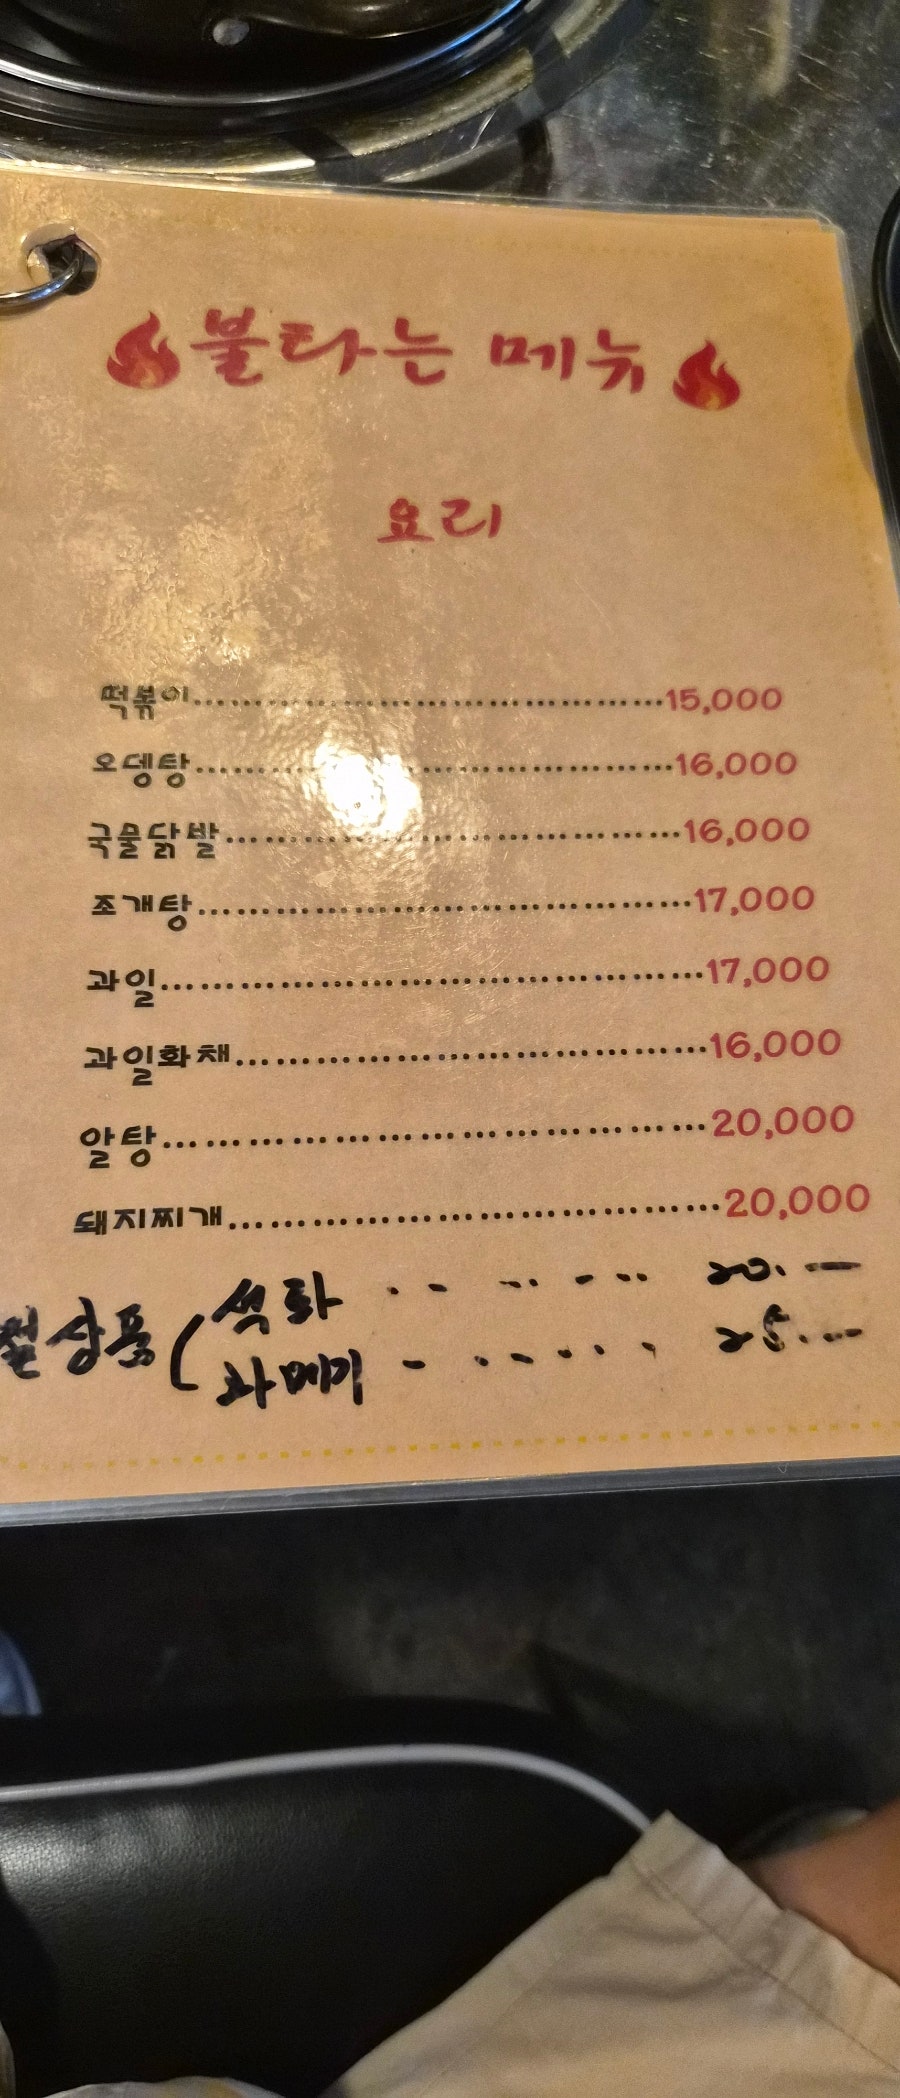 불타는 메뉴
요리
떡볶이.......................................15,000
오뎅탕.......................................16,000
국물닭발.......................................16,000
조개탕.......................................17,000
과일.......................................17,000
과일화채.......................................16,000
알탕.......................................20,000
돼지찌개.......................................20,000
석화 ........ 20.—
철상품 (
과메기 ........ 25.—